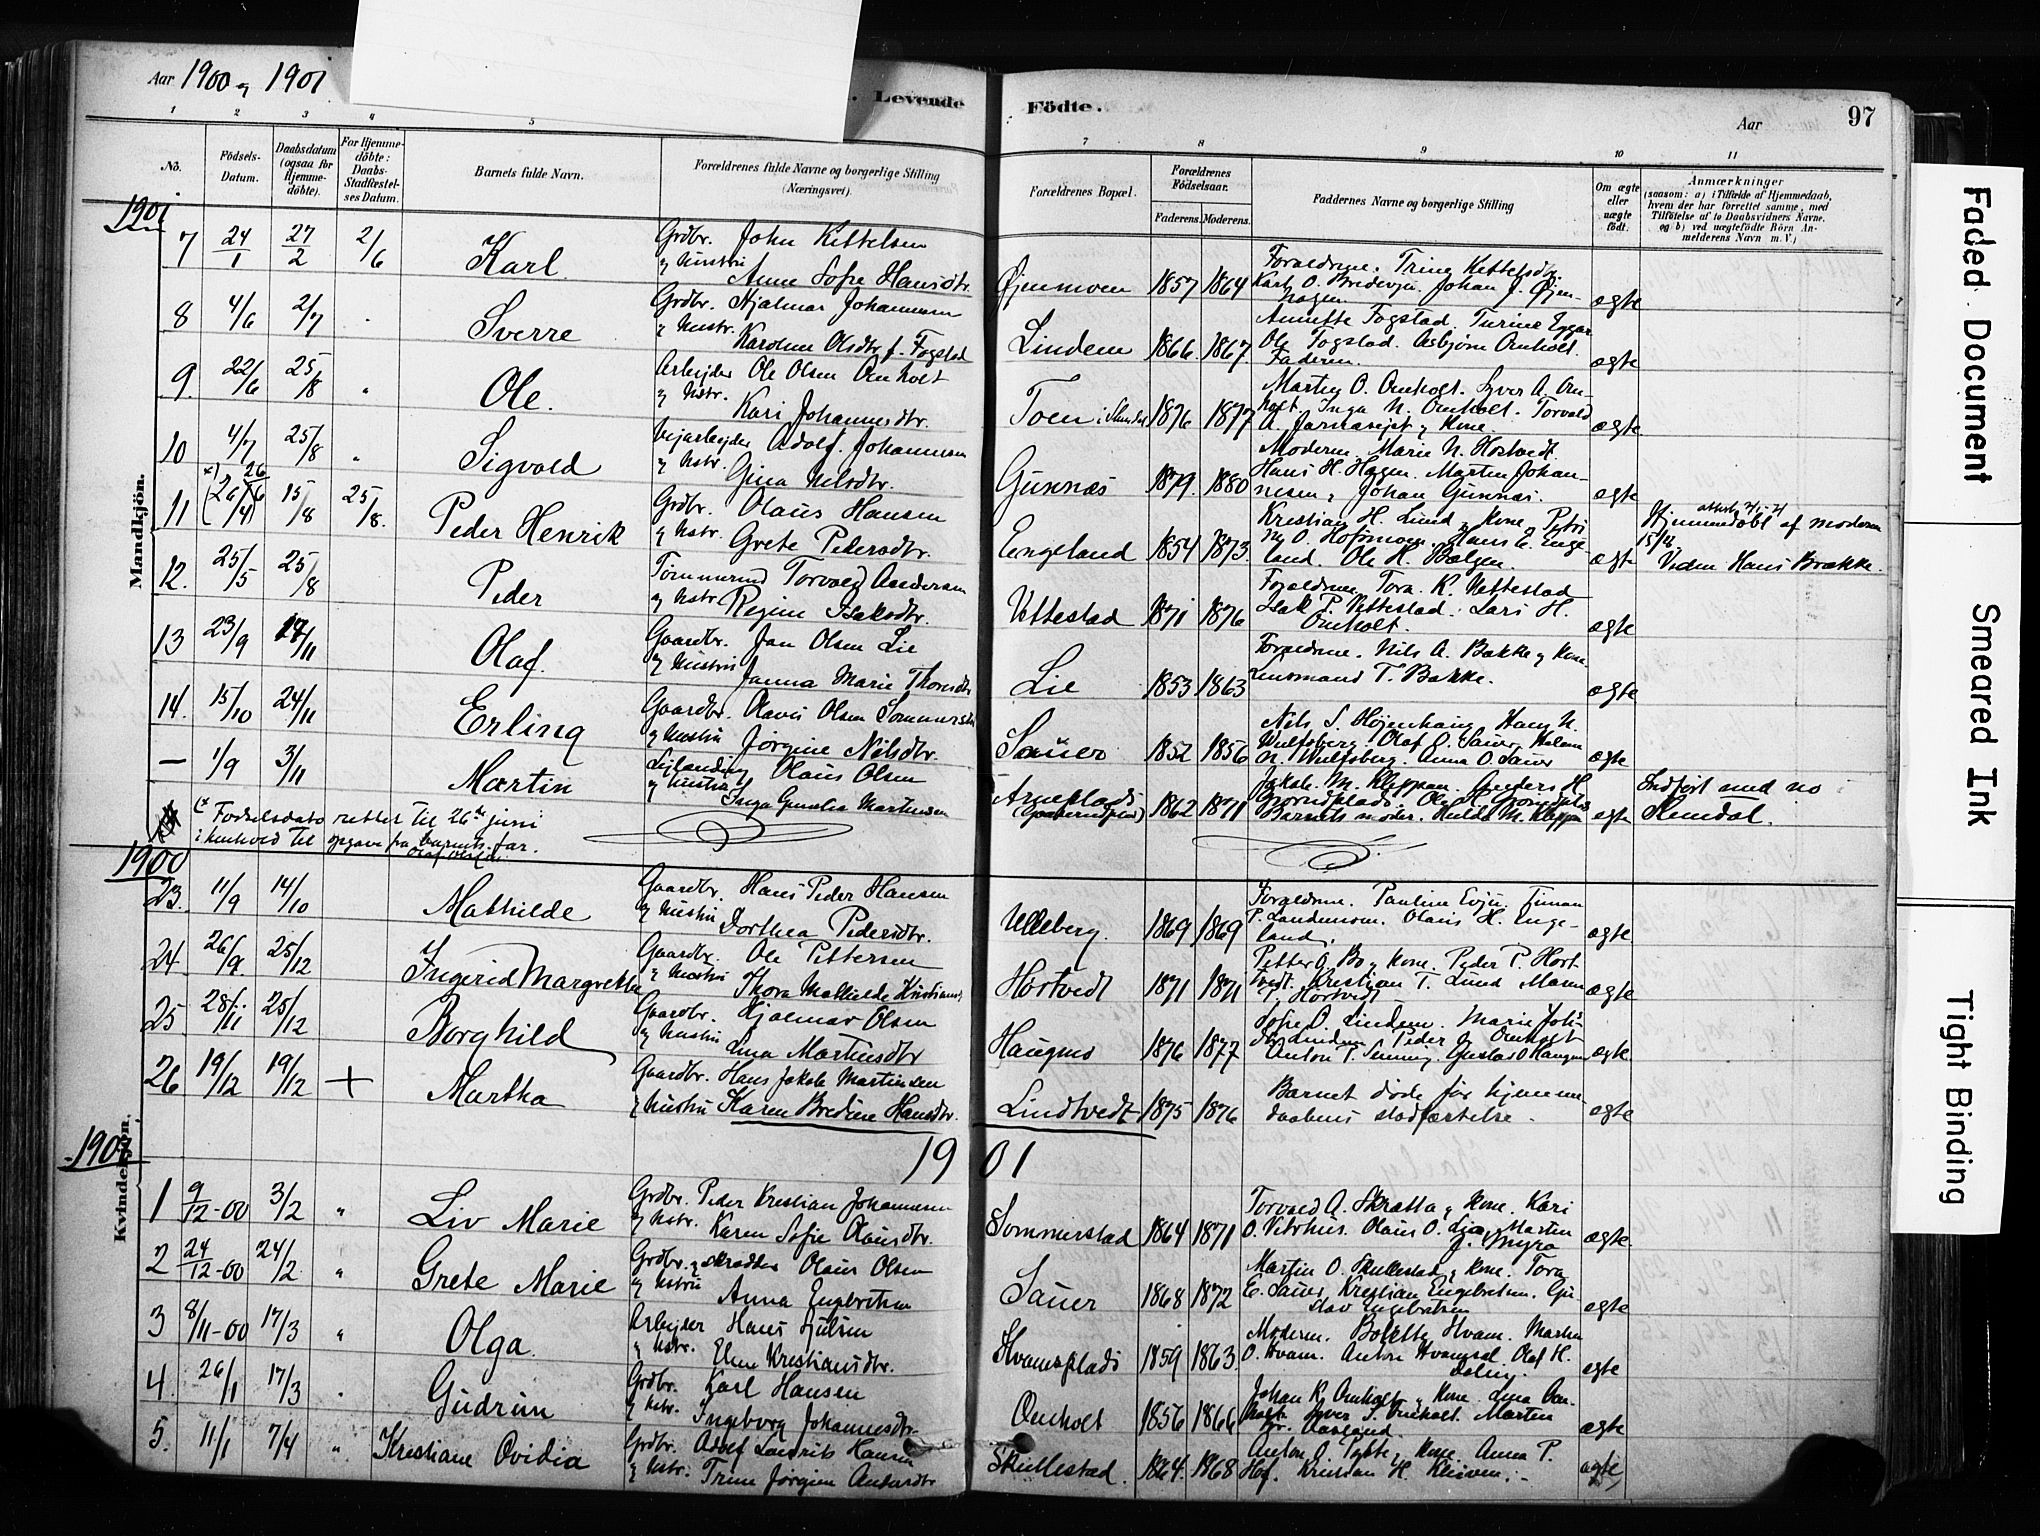 Aar 1900 og 1901
Levende Födte.
Aar 97
1 2 3 4 5 7 8 9 10 11
No.
Födsels-Datum.
Daabsdatum (ogsaa for Hjemme-döbte).
For Hjemme-döbte: Daabs-Stadfæstelses Datum.
Barnets fulde Navn.
Forældrenes fulde Navne og borgerlige Stilling (Næringsvei).
Forældrenes Bopæl.
Forældrenes Födselsaar.
Faderens. Moderens.
Faddernes Navne og borgerlige Stilling
Om ægte eller uægte født.
Anmærkninger
(saasom: a) i Tilfælde af Hjemmedaab, hvem der har forrettet samme, med Tilföielse af to Daabsvidners Navne, og b) ved uægtefödte Börn Anmelderens Navn m. V.)
Mandkjön.
1901
7 24/1 27/2 2/6 Karl Grdbr. John Kittelsen
og hustru Anne Sofie Hansdtr. Øjenmoen 1857 1864 Forældrene. Trine Kittelsdtr.
Karl O. Bredevju. Johan J. Øjenhagen ægte
8 4/6 2/7 Sverre Grdbr. Hjalmar Johannesen
og hustr. Karoline Olsdtr f. Fogstad Lindem 1866 1867 Annette Fogstad.
Ole Fogstad. Asbjørn Omholt.
Faderen ægte
9. 22/6 25/8 " Ole. Arbejder Ole Olsen Omholt
og hstr. Kari Johannesdtr. Toen i Slemdal 1876 1877 Martin O. Omholt. Syver A. Omholt. Inga N. Omholt. Torvald
A. Jarnasejet og Kone. ægte
10 4/7 25/8 " Sigvald Vejarbejder Adolf Johannesen
og hstr. Gina Nilsdtr. Gunnæs 1879. 1880 Moderen. Marie N. Hortvedt.
Hans H. Hagen. Martin Johannesen og Johan Gunnæs. ægte
11 (26/4) x) 26/6 15/8 25/8. Peder Henrik Grdbr. Olaus Hansen
og hstr. Grete Pedersdtr. Engeland 1854 1873. Kristian H. Lund og Kone.
Hans E. Engeland. Ole H. Bolgen. ægte Hjemmedøbt af moderen
15/8
Viden Hans Brække.
12. 25/5 25/8 Peder Tømmermd Torvald Andersen
og hstr. Regine Isaksdtr. Vettestad 1871 1876 Forældrene Tora K. Vettestad
Isak P. Vettestad. Lars H.
Omholt. ægte
13 23/9 17/11 Olaf. Gaardbr. Jan Olsen Lie
og hustru Janna Marie Thorsdtr Lie 1853 1863 Forældrene. Nils A. Bakke og Kone
Lensmand T. Bakke. ægte
14. 15/10 24/11 Erling Gaardbr. Olaves Olsen Sommerstad
og hustru Jørgine Nilsdtr. Sauer 1852 1856 Nils S. Højenhaug. Hans N.
Wulfsberg. Olaf O. Sauer.
N. Wulfsberg. Anna O. Sauer ægte
— 1/9 3/11 Martin Olaus Olsen
og hustru Inga Martinsen 1862 1871 Jakob M. Kleppan. Anders H.
Barnets moder. Hulda M. Kleppan ægte Indført med no i
Slemdal.
(x Fødselsdato rettet til 26de juni
i henhold til opgave fra barnets far.
1900
23. 11/9 14/10 Mathilde Gaardbr. Hans Peder Hansen
og hustru Dorthea Pedersdtr. Ulleberg. 1869 1869 Forældrene. Pauline Evju.
P. Landemoen. Olaus H. Engeland. ægte
24 26/9. 25/12 Ingerid Margrethe Gaardbr. Ole Pettersen
og hustru Thora Mathilde Kristiansd. Hortvedt 1871 1871 Petter O. Bo og Kone. Peder P. Hortvedt. Kristian T. Lund
T. Hortvedt ægte
25 28/11 25/12 Borghild Gaardbr. Hjalmar Olsen
og hustru Lina Martinsdtr Haugmo 1876 1877 Sofie O. Lindem. Marie
Lindem Peder Omholt
Anton P. Gustav O. Haugmo ægte
26 19/12 19/12 + Martha Gaardbr. Hans Jakob Martinsen
og hustru Karen Bredine Hansdtr. Lindtvedt 1875 1876 Barnet døde før hjemmedaabens stadfæstelse. ægte
Kvindekjön.
1901
19 01
1 9/12-00 3/2 " Liv Marie Grdbr. Peder Kristian Johannesen
og hstr. Karen Sofie Olausdtr. Sommerstad 1864 1871 Torvald A. Skratta og Kone. Kari
O. Vetrhus. Olaus O. Martin
J. Myra ægte.
2 24/12-00 24/2 " Grete Marie Grdbr. og skrædder Olaus Olsen
og hstru Anna Engbretsen Sauer 1868 1872 Martin O. Skullestad og Kone. Tora
E. Sauer, Kristian Engebretsen. Gustav Engebretsen ægte
3 8/11-00 17/3 " Olga Arbejder Hans Julsen
og hstr. Eline Kristiansdtr. Kvamsplads 1859 1863. Moderen. Bolette Hvam. Martin
O. Hvam. Anton Olaf H.
ægte
4. 26/1 17/3 Gudrun Grdbr. Karl Hansen
og hstr. Ingeborg Johannesdtr. Omholt 1856 1866 Johan K. Omholt og Kone. Lina Omholt. Syver S. Omholt. Martin
Aasland ægte
5. 11/1 7/4 " Kristiane Ovidia Grdbr. Adolf Laurits Hansen
og hstr. Trine Jørgine Andersdtr Skullestad. 1864. 1868 Anton O. Tufte og Kone. Anna P.
Hof. Kristian H. Kleiven. ægte
Faded Document
Smeared Ink
Tight Binding